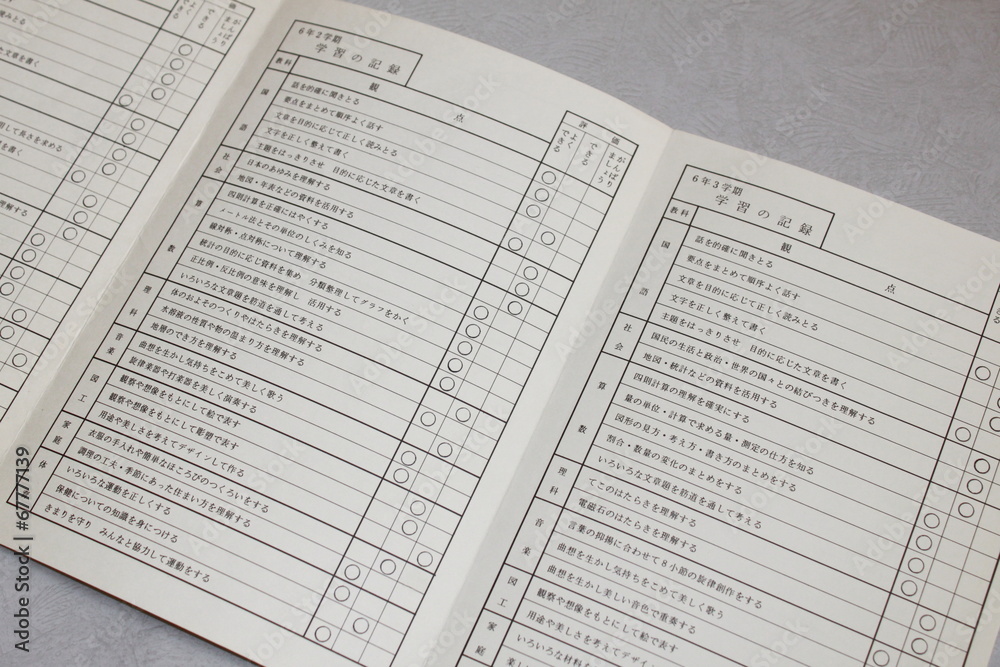 評 価
よく できる
できる
がんばり ましょう
読みとる
た文章を書く
用して長さを求める
を書く
理解する
6年2学期
学習の記録
教科 観 点 評 価
よく できる
できる
がんばり ましょう
国語
話を的確に聞きとる
要点をまとめて順序よく話す
文章を目的に応じて正しく読みとる
文字を正しく整えて書く
主題をはっきりさせ 目的に応じた文章を書く
社会
日本のあゆみを理解する
地図・年表などの資料を活用する
算数
四則計算を正確にはやくする
メートル法とその単位のしくみを知る
線対称・点対称について理解する
統計の目的に応じ資料を集め 分類整理してグラフをかく
正比例・反比例の意味を理解し 活用する
いろいろな文章題を筋道を通して考える
理科
体のおよそのつくりやはたらきを理解する
水溶液の性質や物の温まり方を理解する
地層のでき方を理解する
音楽
曲想を生かし気持ちをこめて美しく歌う
旋律楽器や打楽器を美しく演奏する
図工
観察や想像をもとにして絵で表す
観察や想像をもとにして彫塑で表す
用途や美しさを考えてデザインして作る
家庭
衣服の手入れや簡単なほころびのつくろいをする
調理の工夫・季節にあった住まい方を理解する
体
いろいろな運動を正しくする
保健についての知識を身につける
きまりを守り みんなと協力して運動をする
6年3学期
学習の記録
教科 観 点
国語
話を的確に聞きとる
要点をまとめて順序よく話す
文章を目的に応じて正しく読みとる
文字を正しく整えて書く
主題をはっきりさせ 目的に応じた文章を書く
社会
国民の生活と政治・世界の国々との結びつきを理解する
地図・統計などの資料を活用する
算数
四則計算の理解を確実にする
量の単位・計算で求める量・測定の仕方を知る
図形の見方・考え方・書き方のまとめをする
割合・数量の変化のまとめをする
いろいろな文章題を筋道を通して考える
理科
てこのはたらきを理解する
電磁石のはたらきを理解する
音楽
言葉の抑揚に合わせて8小節の旋律創作をする
曲想を生かし気持ちをこめて美しく歌う
曲想を生かし美しい音色で重奏する
図工
観察や想像をもとにして絵で表す
用途や美しさを考えてデザイン
いろいろな材料を
家庭
楽し
Adobe Stock | #67777139
Adobe Stock